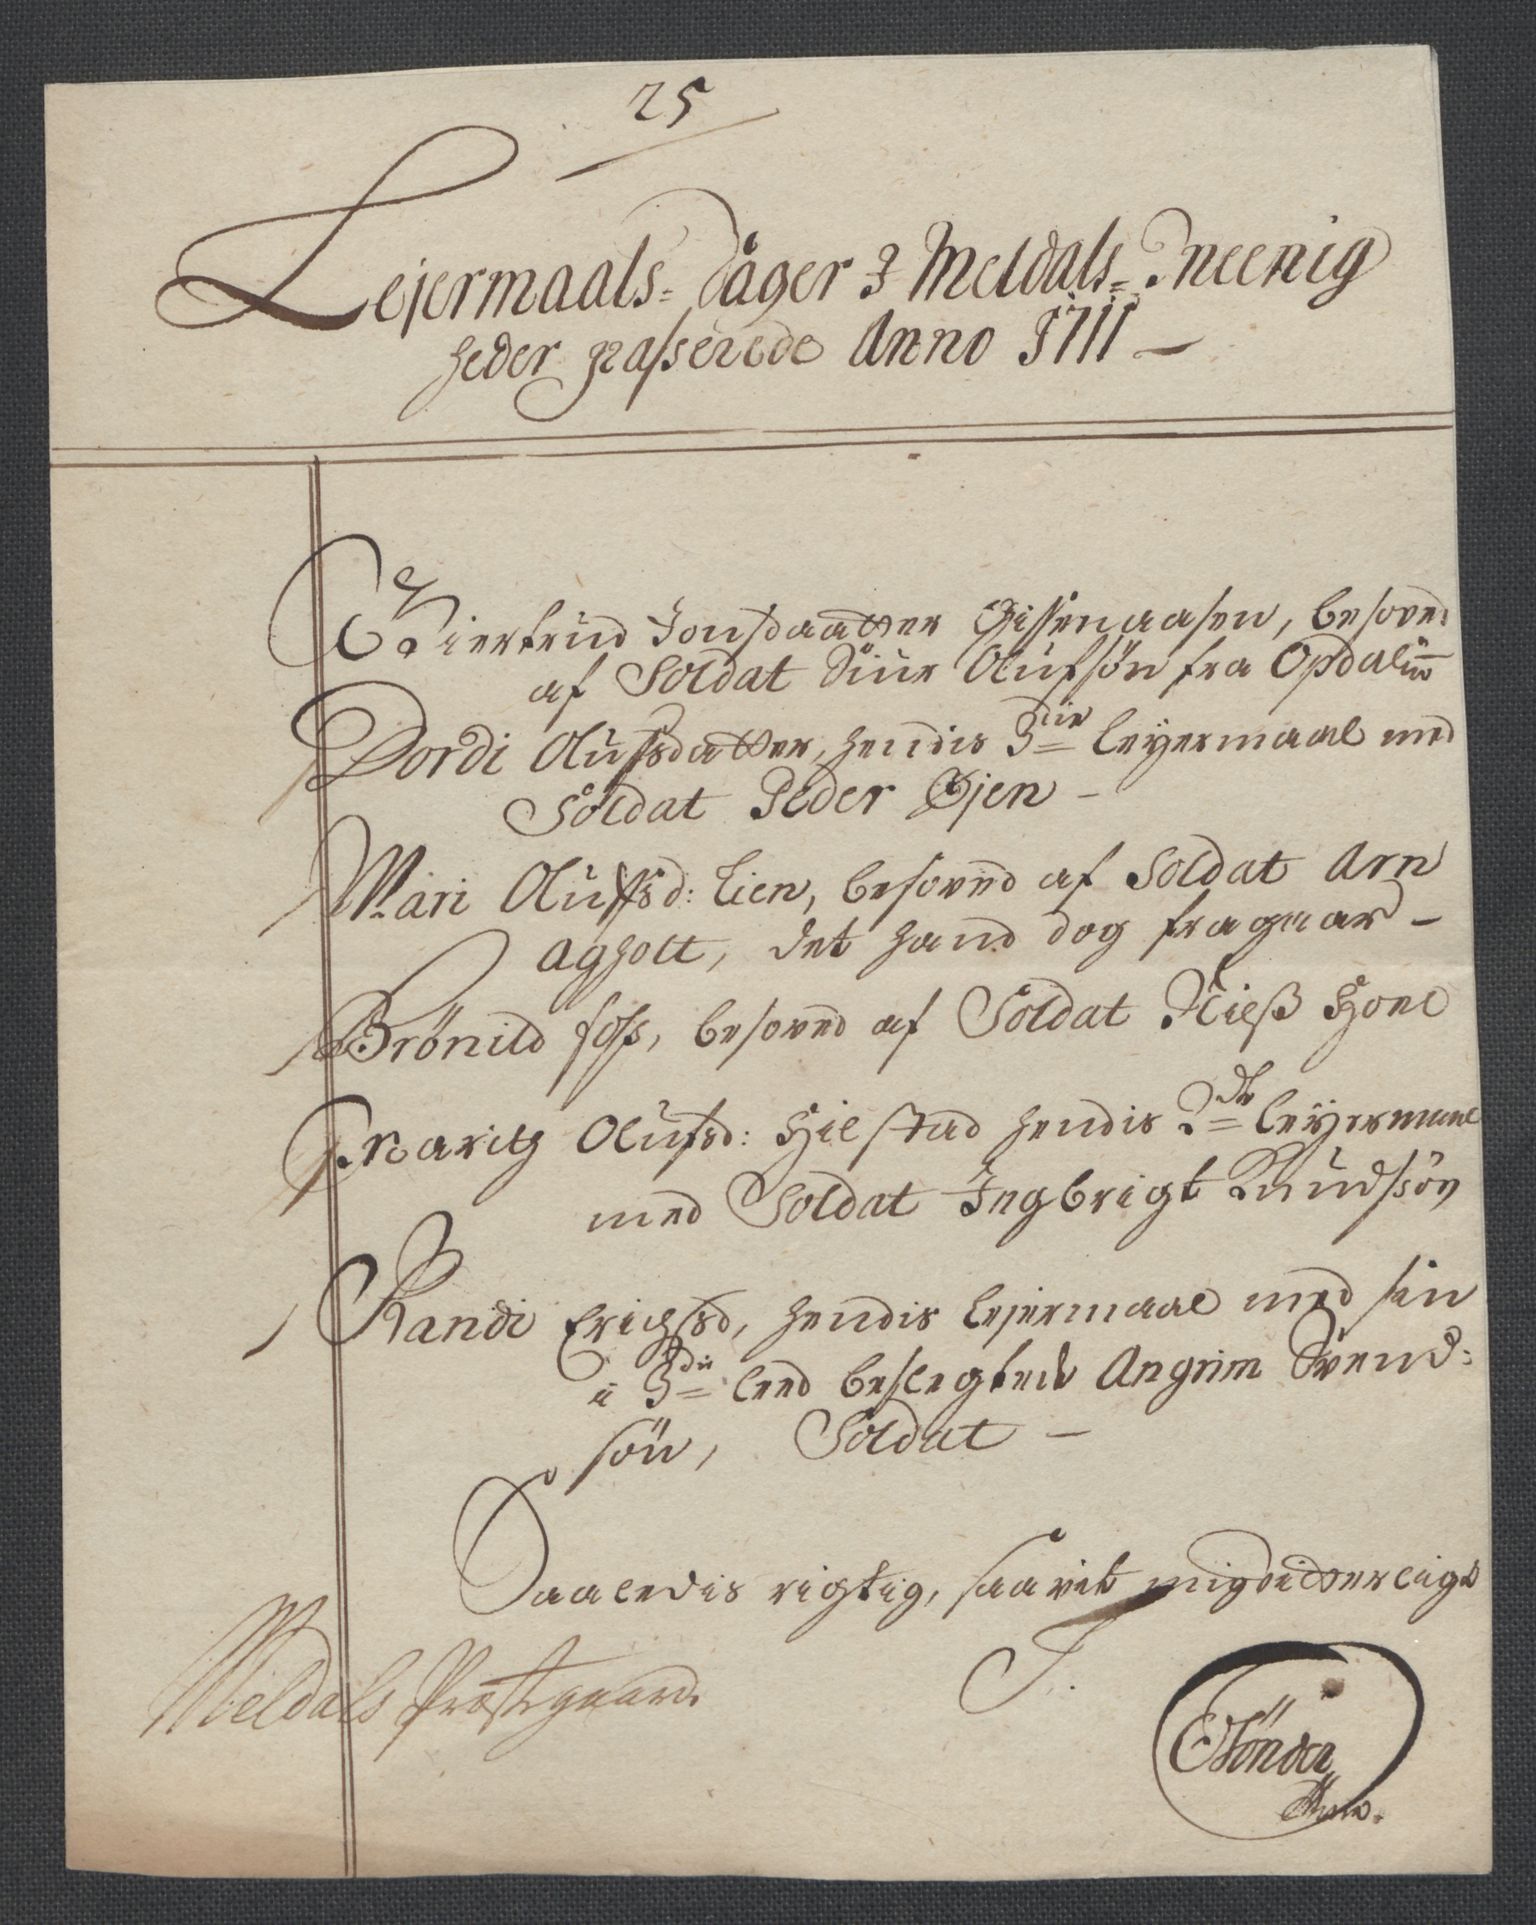 25
Lejermaals-Sager i Meldals-Meenig
heder passerede Anno 1711 —
Giertrud Jonsdaatter Gissenaasen, besoved
af Soldat Siur Olufsøn fra Opdalen
Dordi Olufsdatter, hendis 3die leyermaal med
Soldat Peder Øjen —
Mari Olufsd: Lien, besoved af Soldat Arn
Agholt, det hand dog fragaar —
Brønild foss, besoved af Soldat Nielß Hoel
Marith Olufsd: Hilstad hendis 2de leyermaal
med Soldat Ingbrigt Knudssøn
Randi Erichsd, hendis lejermaal med sin
i 3die leed beslegtede Angrim Svend:
søn, Soldat —
Saaledis rigtig, saavit mig vitterligt
Meldals Præstgaard.
T.
Tønder